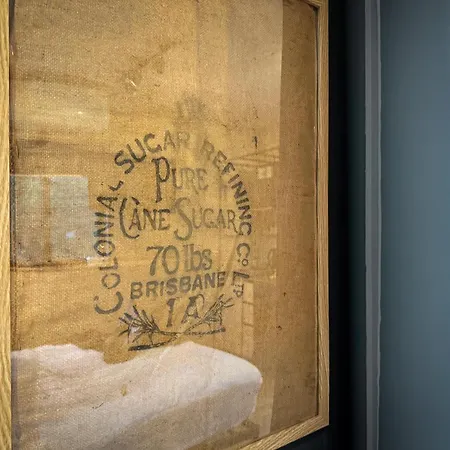 THE
COLONIAL SUGAR REFINING CO. LTD.
PURE
CANE SUGAR
70 lbs
BRISBANE
1A